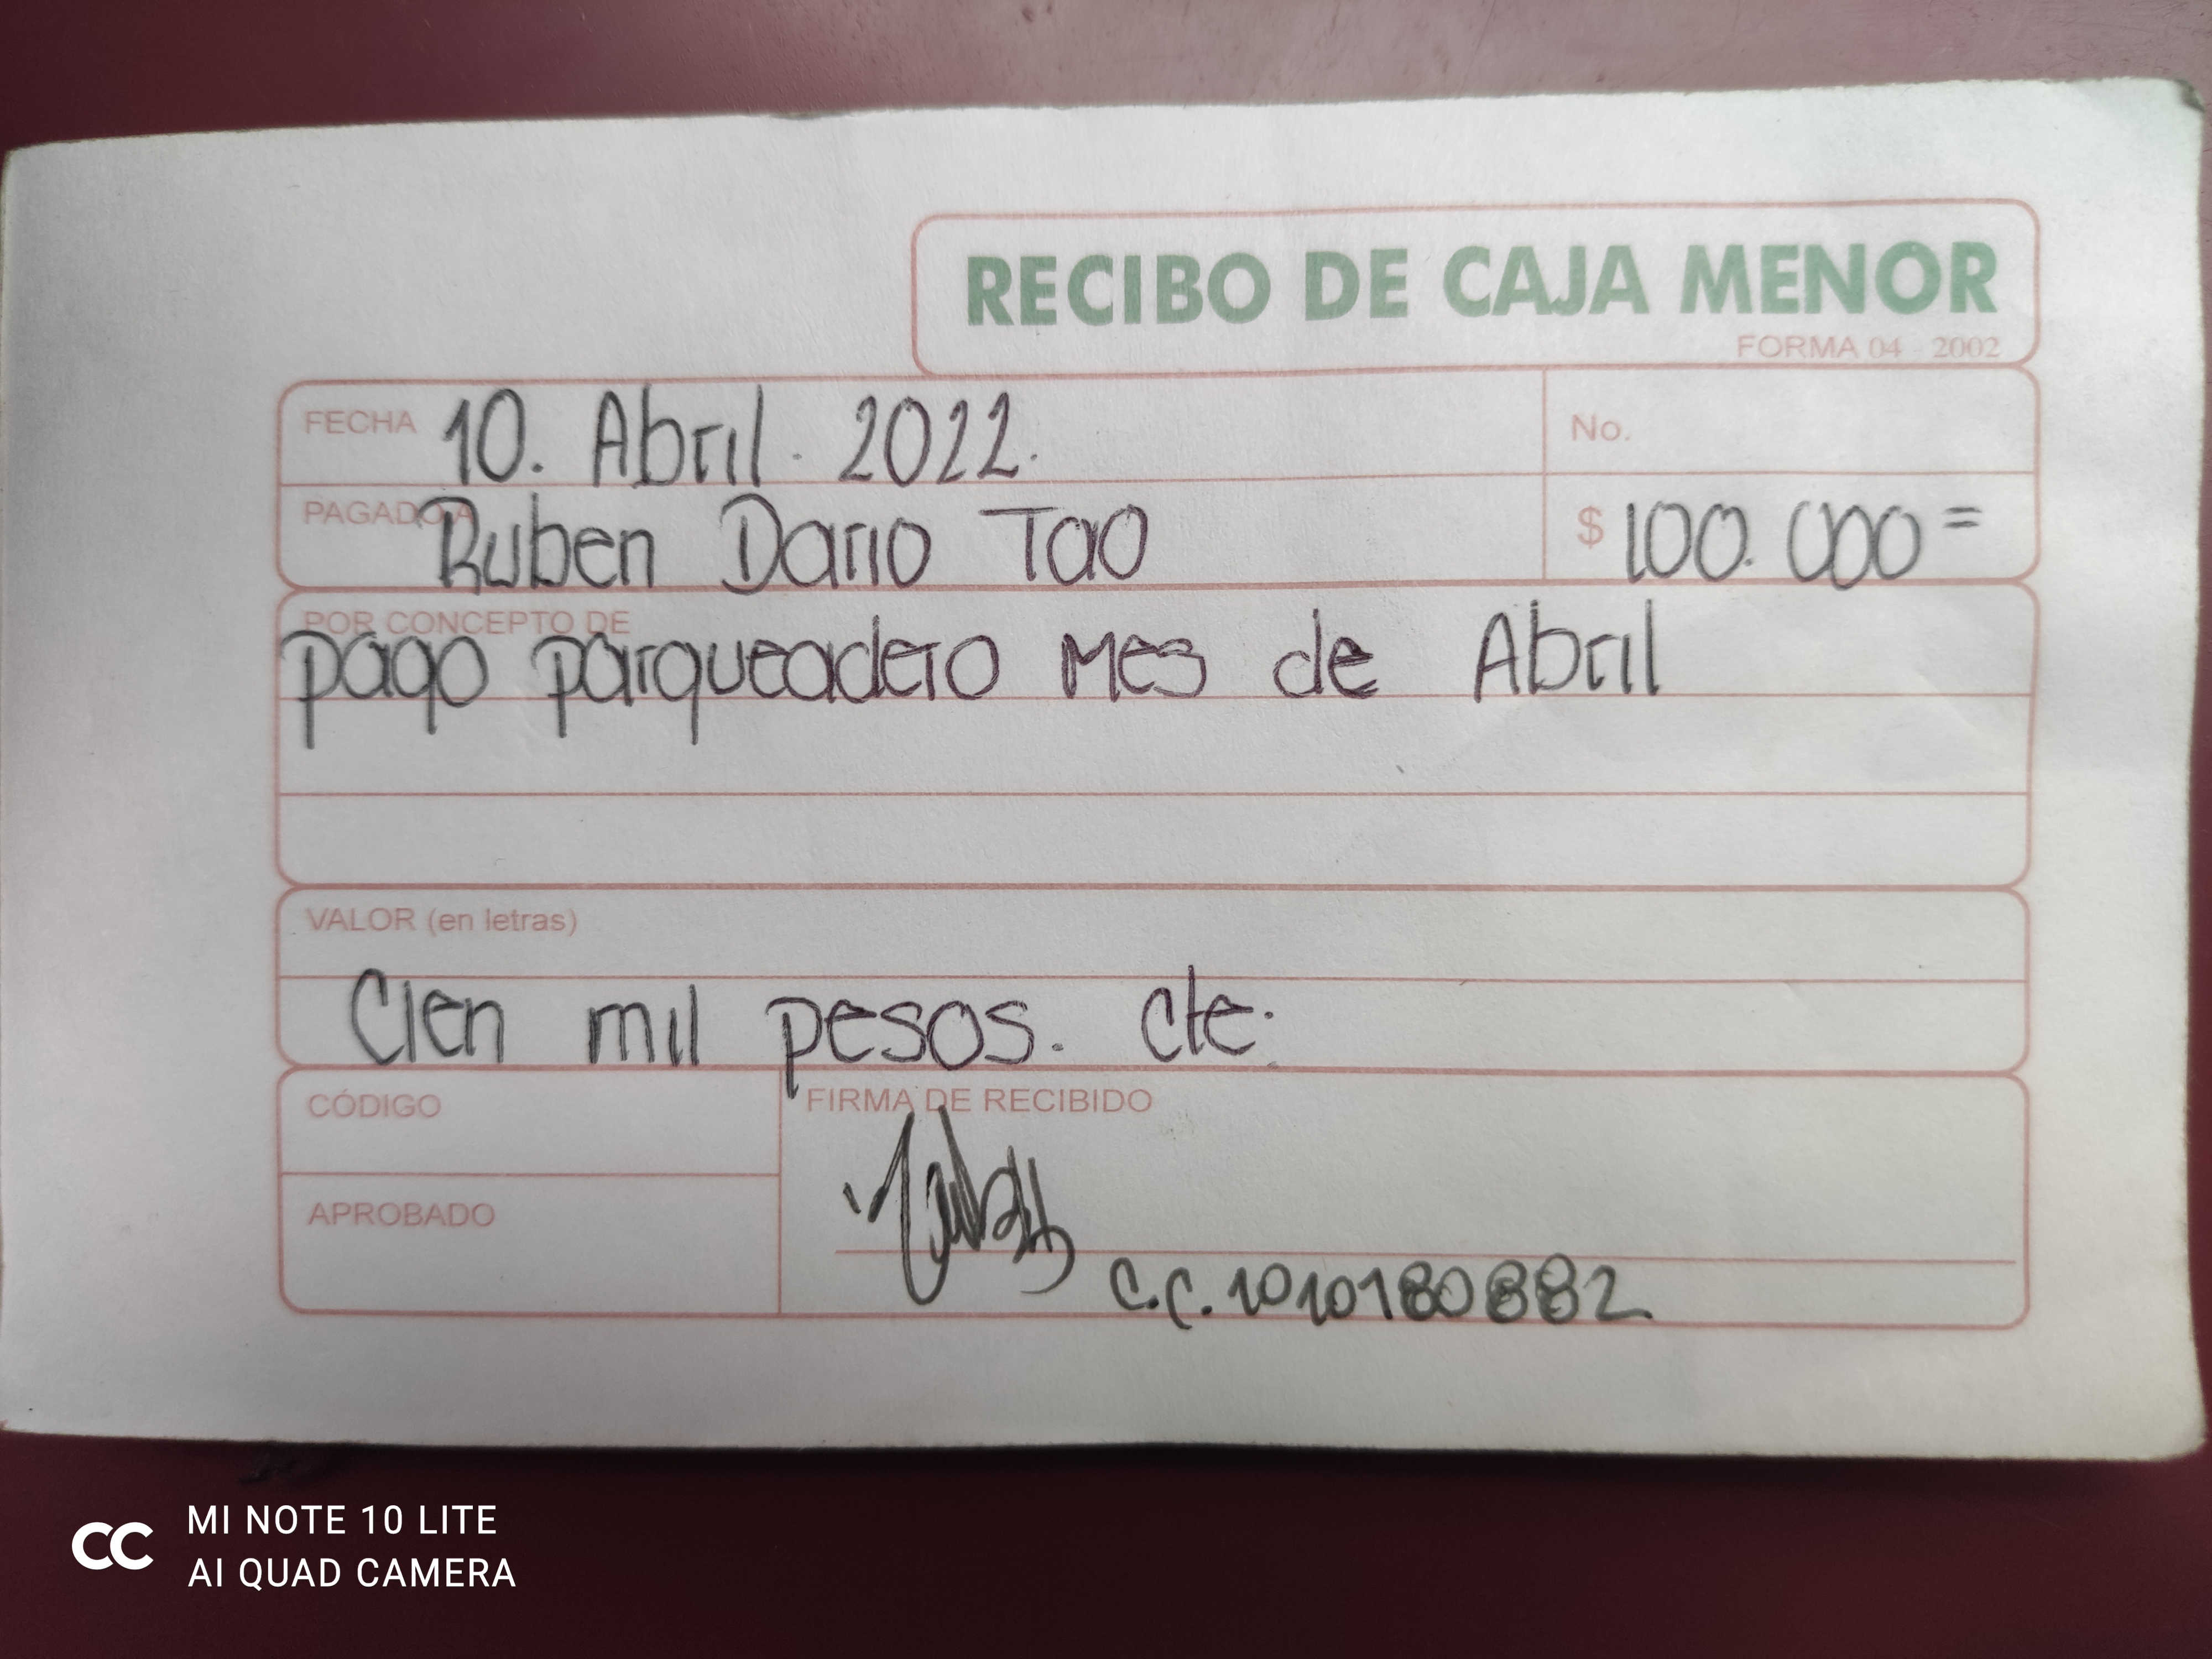 RECIBO DE CAJA MENOR
FORMA 04 - 2002
FECHA 10. Abril. 2022.
No.
PAGADO A Ruben Dario Tao
$ 100.000=
POR CONCEPTO DE
pago parqueadero Mes de Abril
VALOR (en letras)
Cien mil pesos. cte.
CÓDIGO
FIRMA DE RECIBIDO
APROBADO
C.C. 1010180882
CC MI NOTE 10 LITE
AI QUAD CAMERA